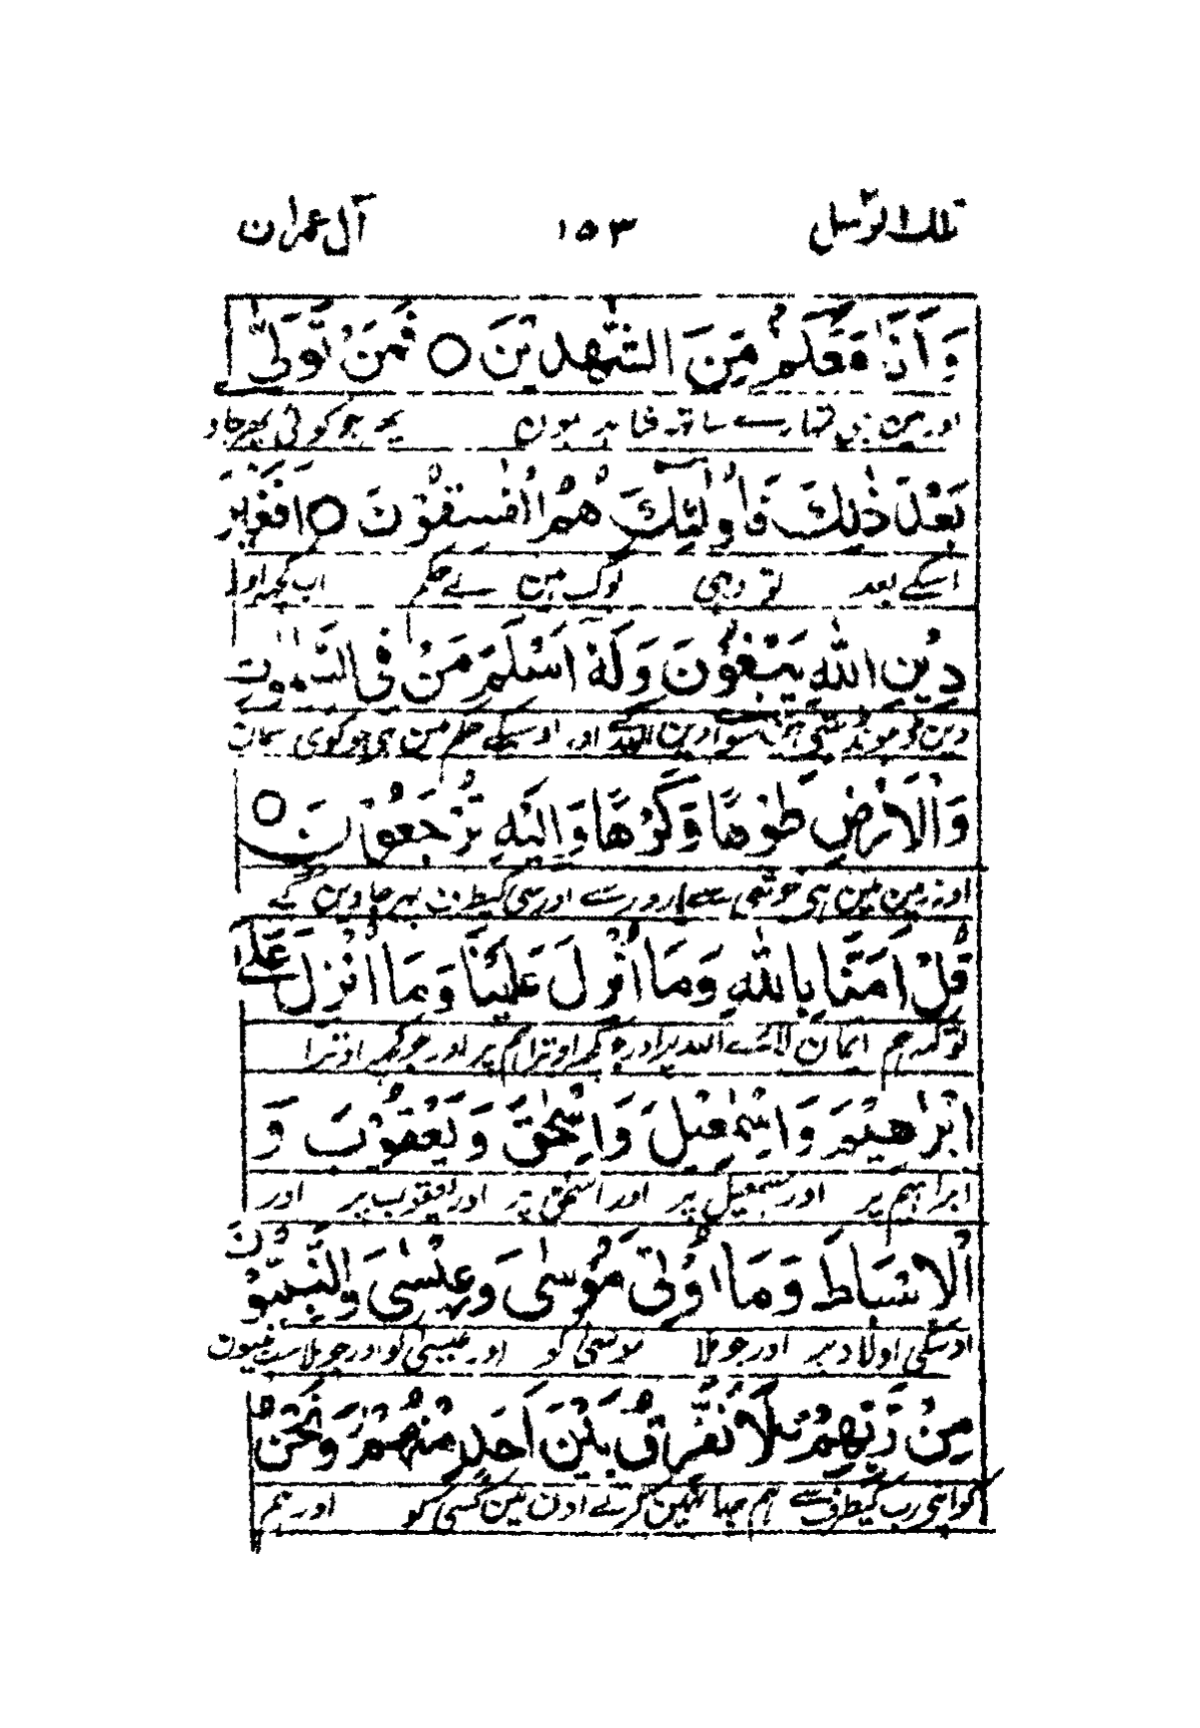 تلك الرسل ۱۵۳ آل عمران
وَاَنَا مَعَكُمْ مِّنَ الشّٰهِدِيْنَ ○ فَمَنْ تَوَلّٰى
اور مین بہی تمہارے ساتہ شاہد ہون پہر جو کوئی پہر جاو
بَعْدَ ذٰلِكَ فَاُولٰٓئِكَ هُمُ الْفٰسِقُوْنَ ○ اَفَغَيْرَ
اسکے بعد تو وہی لوگ ہین بے حکم اب کچہہ اور
دِيْنِ اللّٰهِ يَبْغُوْنَ وَلَهٗٓ اَسْلَمَ مَنْ فِى السَّمٰوٰتِ
دین ڈہونڈتے ہین سوا دین اللہ کے اور اوسیکے حکم مین ہی جو کوئی آسمان
وَالْاَرْضِ طَوْعًا وَّكَرْهًا وَّاِلَيْهِ يُرْجَعُوْنَ ○
اور زمین مین ہی خوشی سے یا زور سے اور اسی کیطرف پہر جاوین گے
قُلْ اٰمَنَّا بِاللّٰهِ وَمَآ اُنْزِلَ عَلَيْنَا وَمَآ اُنْزِلَ عَلٰٓى
تو کہہ ہم ایمان لائے اللہ پر اور جو کچہہ اوترا ہم پر اور جو کچہہ اوترا
اِبْرٰهِيْمَ وَاِسْمٰعِيْلَ وَاِسْحٰقَ وَيَعْقُوْبَ وَ
ابراہیم پر اور اسمعیل پر اور اسحق پر اور یعقوب پر اور
الْاَسْبَاطِ وَمَآ اُوْتِىَ مُوْسٰى وَعِيْسٰى وَالنَّبِيُّوْنَ
اوسکی اولاد پر اور جو ملا موسی کو اور عیسی کو اور جو ملا سب نبیون
مِنْ رَّبِّهِمْ لَا نُفَرِّقُ بَيْنَ اَحَدٍ مِّنْهُمْ وَنَحْنُ
کو اپنی رب کیطرف سے ہم جدا نہین کرتے اون مین کسی کو اور ہم